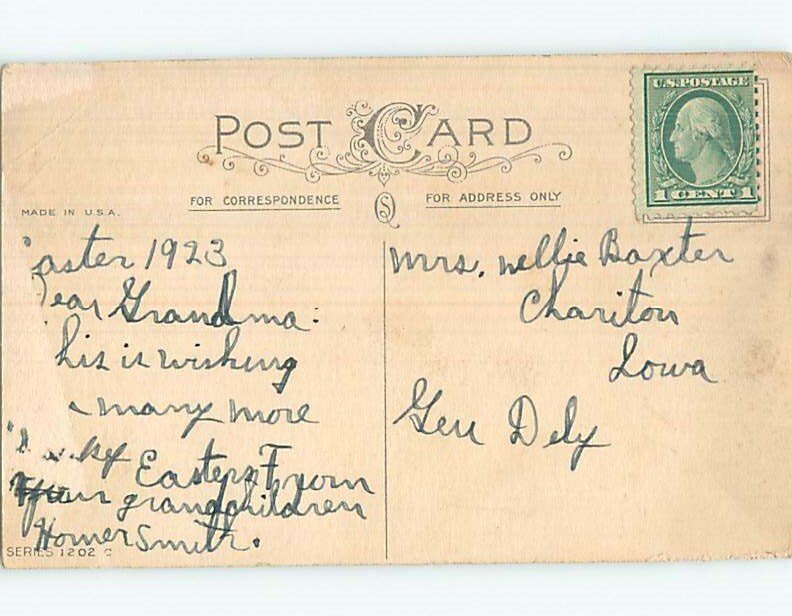 POST CARD
U.S. POSTAGE
1 CENT 1
FOR CORRESPONDENCE
FOR ADDRESS ONLY
MADE IN U.S.A.
aster 1923
ear Grandma:
his is wishing
many more
Easters From
your grandchildren
Homer Smith.
SERIES 1202 C
Mrs. Nellie Baxter
Chariton
Iowa
Gen Dely